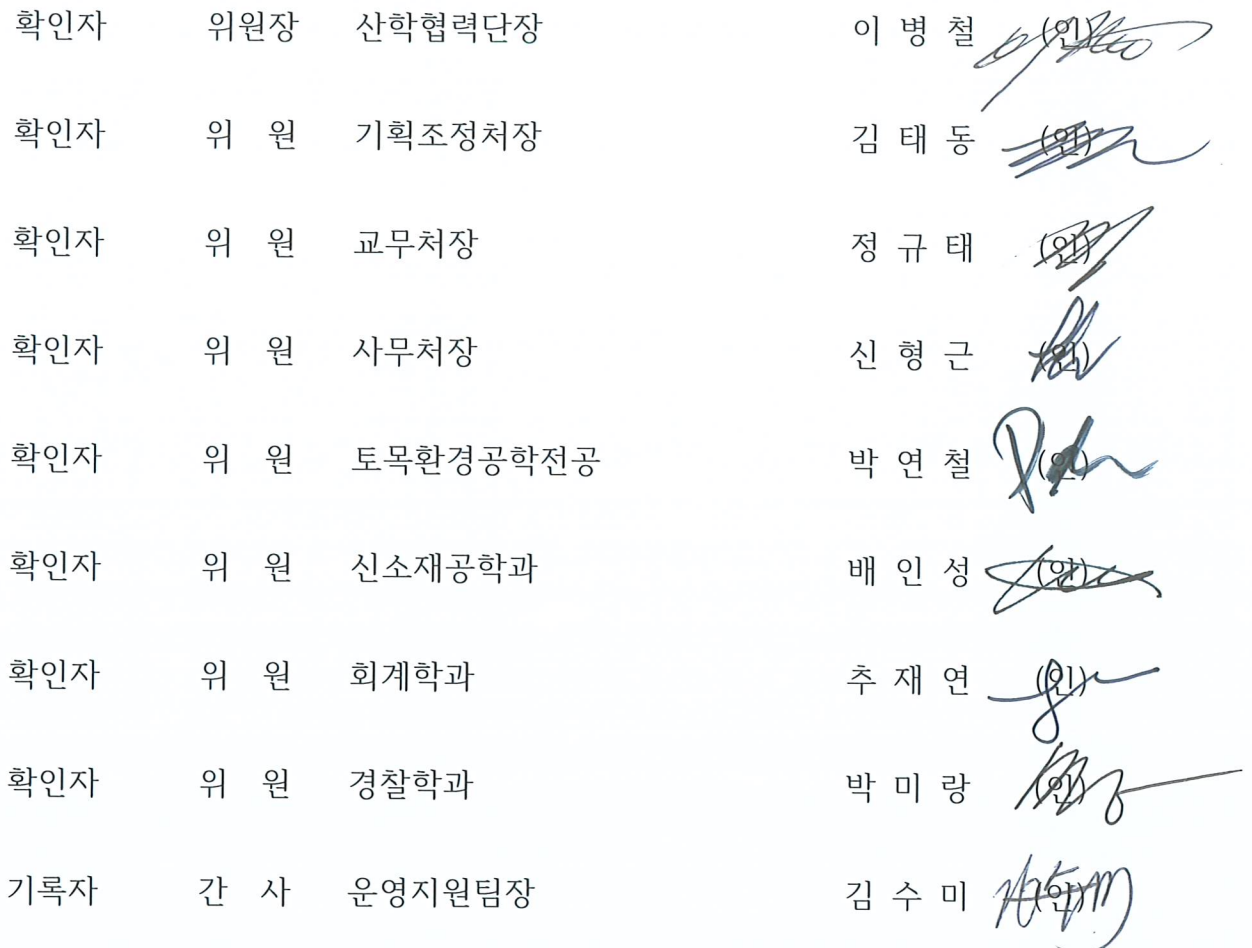 확인자 위원장 산학협력단장 이 병 철 (인)
확인자 위 원 기획조정처장 김 태 동 (인)
확인자 위 원 교무처장 정 규 태 (인)
확인자 위 원 사무처장 신 형 근 (인)
확인자 위 원 토목환경공학전공 박 연 철 (인)
확인자 위 원 신소재공학과 배 인 성 (인)
확인자 위 원 회계학과 추 재 연 (인)
확인자 위 원 경찰학과 박 미 랑 (인)
기록자 간 사 운영지원팀장 김 수 미 (인)